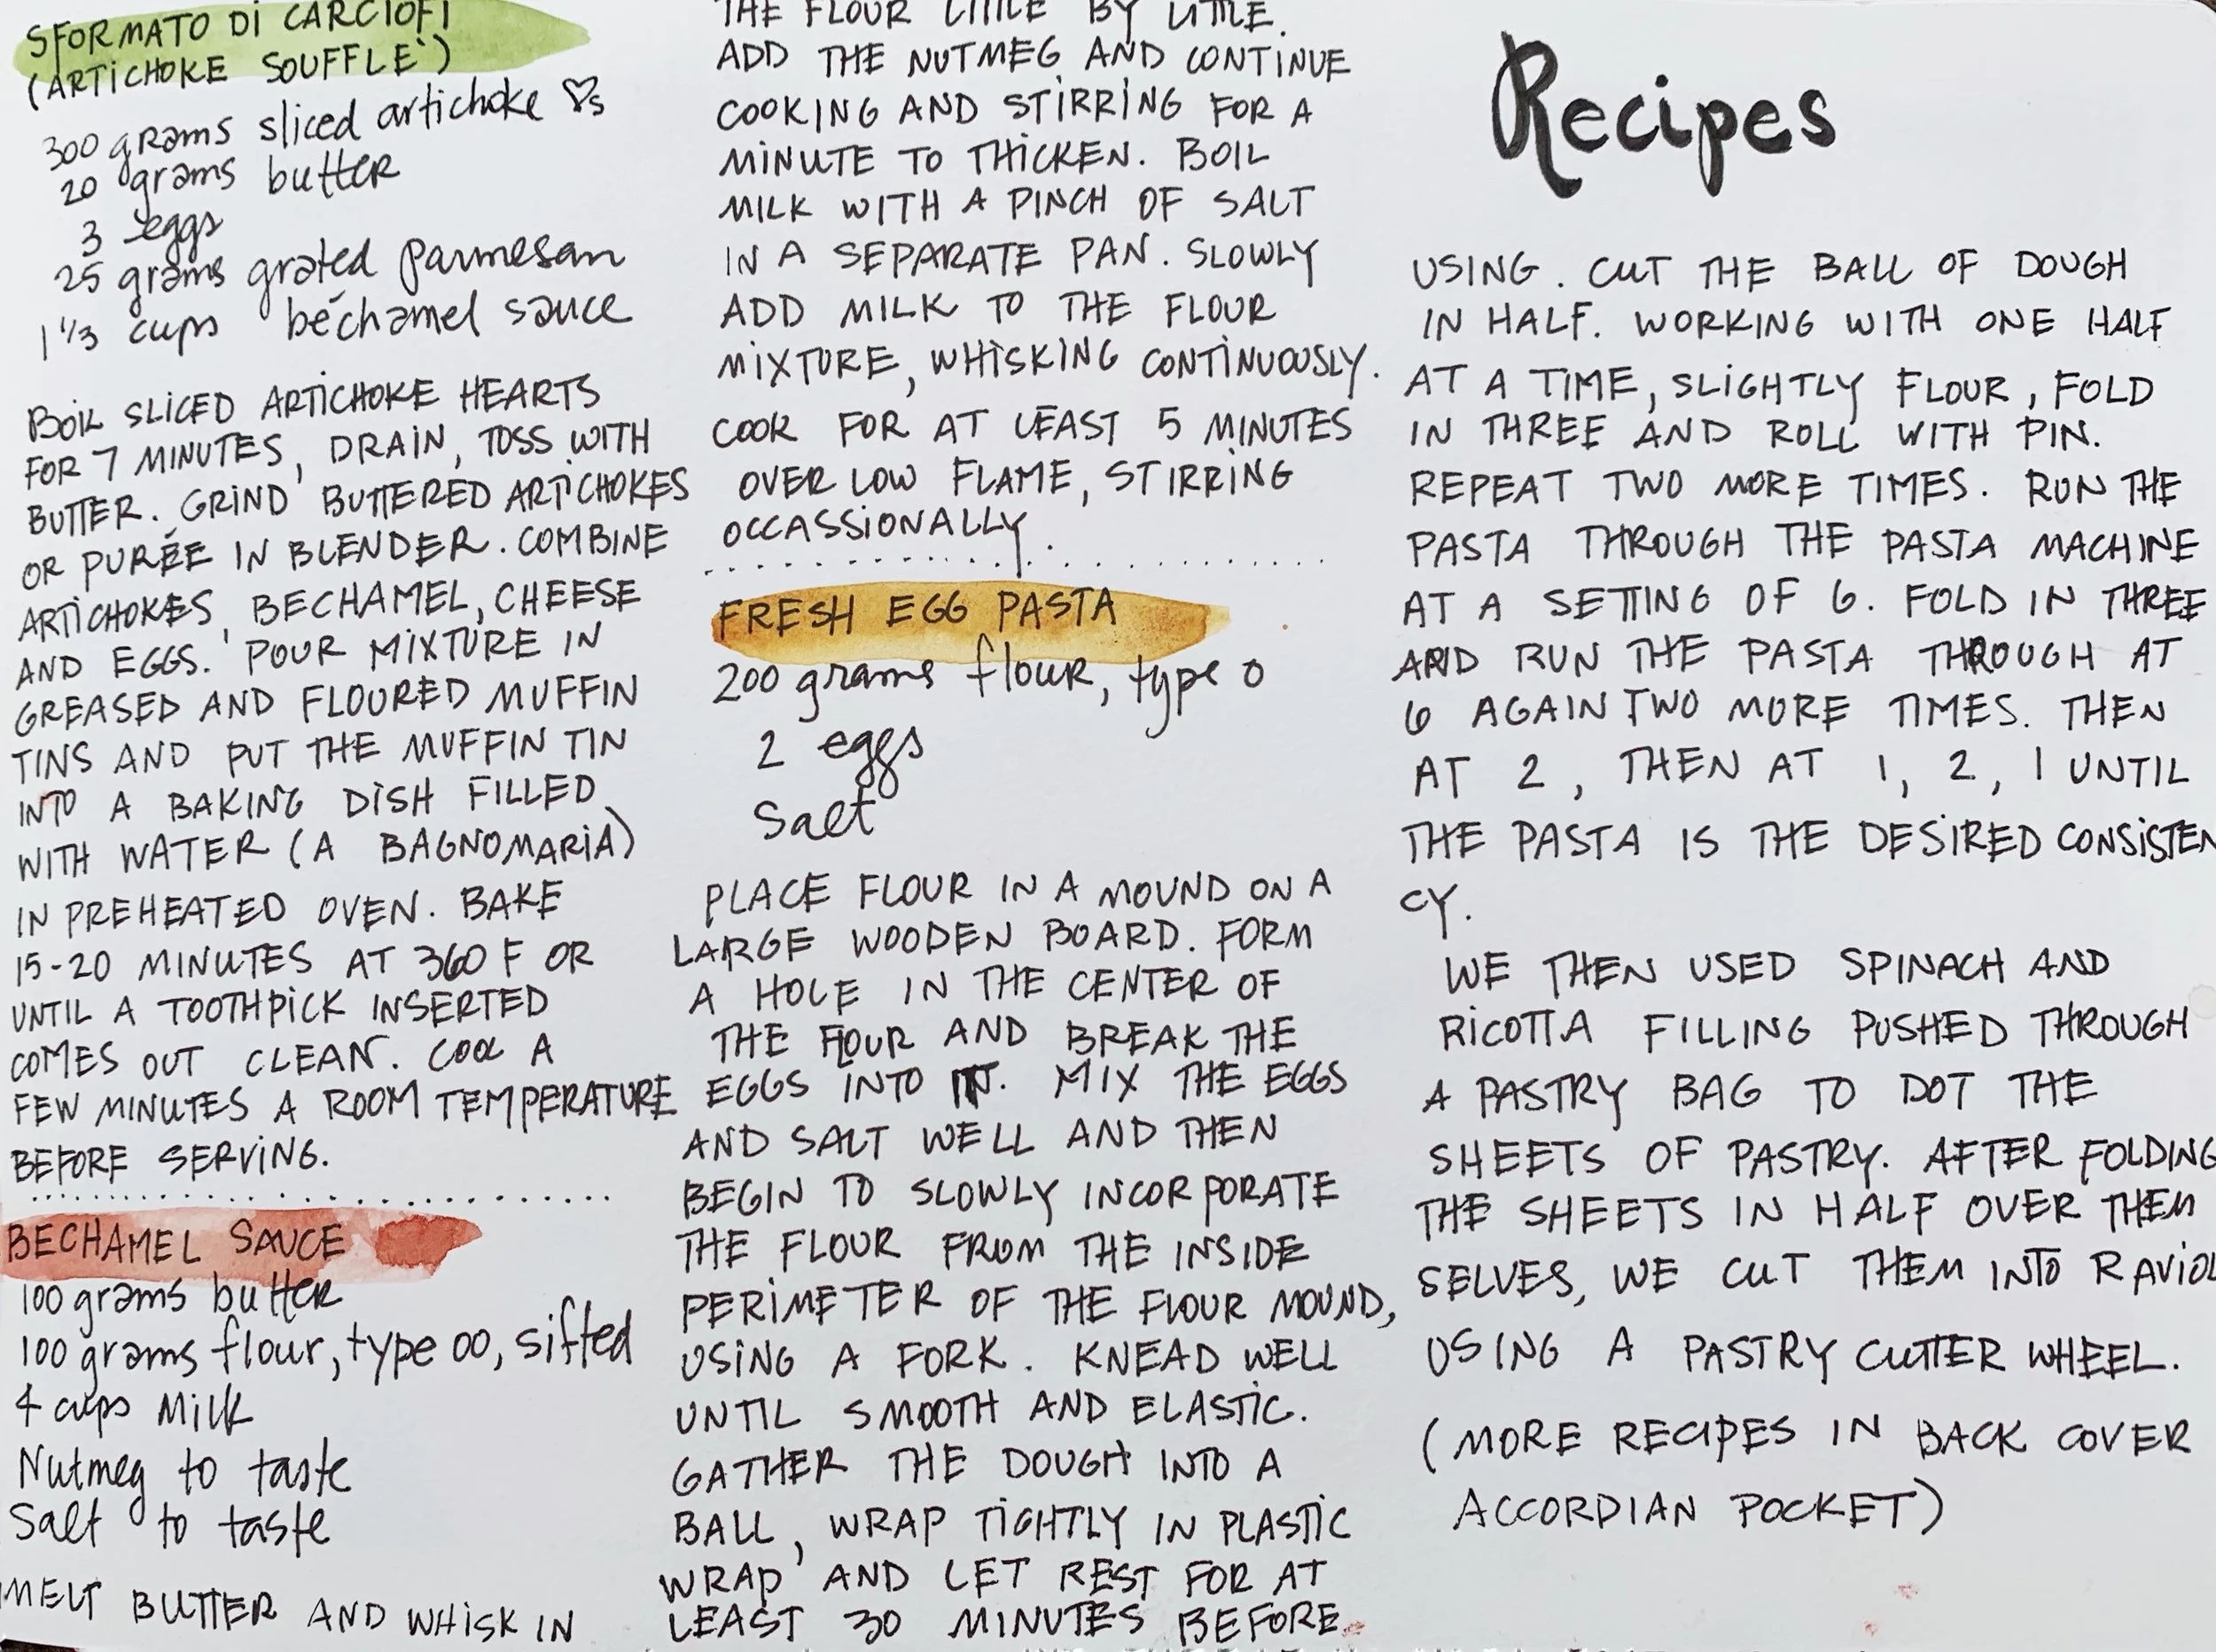 SFORMATO DI CARCIOFI
(ARTICHOKE SOUFFLE`)
300 grams sliced artichoke ♡s
20 grams butter
3 eggs
25 grams grated parmesan
1 1/3 cups béchamel sauce
BOIL SLICED ARTICHOKE HEARTS
FOR 7 MINUTES, DRAIN, TOSS WITH
BUTTER. GRIND BUTTERED ARTICHOKES
OR PURÉE IN BLENDER. COMBINE
ARTICHOKES, BECHAMEL, CHEESE
AND EGGS. POUR MIXTURE IN
GREASED AND FLOURED MUFFIN
TINS AND PUT THE MUFFIN TIN
INTO A BAKING DISH FILLED
WITH WATER (A BAGNOMARIA)
IN PREHEATED OVEN. BAKE
15-20 MINUTES AT 360 F OR
UNTIL A TOOTHPICK INSERTED
COMES OUT CLEAN. COOL A
FEW MINUTES A ROOM TEMPERATURE
BEFORE SERVING.
BECHAMEL SAUCE
100 grams butter
100 grams flour, type 00, sifted
4 cups Milk
Nutmeg to taste
Salt to taste
MELT BUTTER AND WHISK IN
THE FLOUR LITTLE BY LITTLE.
ADD THE NUTMEG AND CONTINUE
COOKING AND STIRRING FOR A
MINUTE TO THICKEN. BOIL
MILK WITH A PINCH OF SALT
IN A SEPARATE PAN. SLOWLY
ADD MILK TO THE FLOUR
MIXTURE, WHISKING CONTINUOUSLY.
COOK FOR AT LEAST 5 MINUTES
OVER LOW FLAME, STIRRING
OCCASSIONALLY.
FRESH EGG PASTA
200 grams flour, type 0
2 eggs
Salt
PLACE FLOUR IN A MOUND ON A
LARGE WOODEN BOARD. FORM
A HOLE IN THE CENTER OF
THE FLOUR AND BREAK THE
EGGS INTO IT. MIX THE EGGS
AND SALT WELL AND THEN
BEGIN TO SLOWLY INCORPORATE
THE FLOUR FROM THE INSIDE
PERIMETER OF THE FLOUR MOUND,
USING A FORK. KNEAD WELL
UNTIL SMOOTH AND ELASTIC.
GATHER THE DOUGH INTO A
BALL, WRAP TIGHTLY IN PLASTIC
WRAP AND LET REST FOR AT
LEAST 30 MINUTES BEFORE
Recipes
USING. CUT THE BALL OF DOUGH
IN HALF. WORKING WITH ONE HALF
AT A TIME, SLIGHTLY FLOUR, FOLD
IN THREE AND ROLL WITH PIN.
REPEAT TWO MORE TIMES. RUN THE
PASTA THROUGH THE PASTA MACHINE
AT A SETTING OF 6. FOLD IN THREE
AND RUN THE PASTA THROUGH AT
6 AGAIN TWO MORE TIMES. THEN
AT 2, THEN AT 1, 2, 1 UNTIL
THE PASTA IS THE DESIRED CONSISTEN
CY.
WE THEN USED SPINACH AND
RICOTTA FILLING PUSHED THROUGH
A PASTRY BAG TO DOT THE
SHEETS OF PASTRY. AFTER FOLDING
THE SHEETS IN HALF OVER THEM
SELVES, WE CUT THEM INTO RAVIOL
USING A PASTRY CUTTER WHEEL.
(MORE RECIPES IN BACK COVER
ACCORDIAN POCKET)